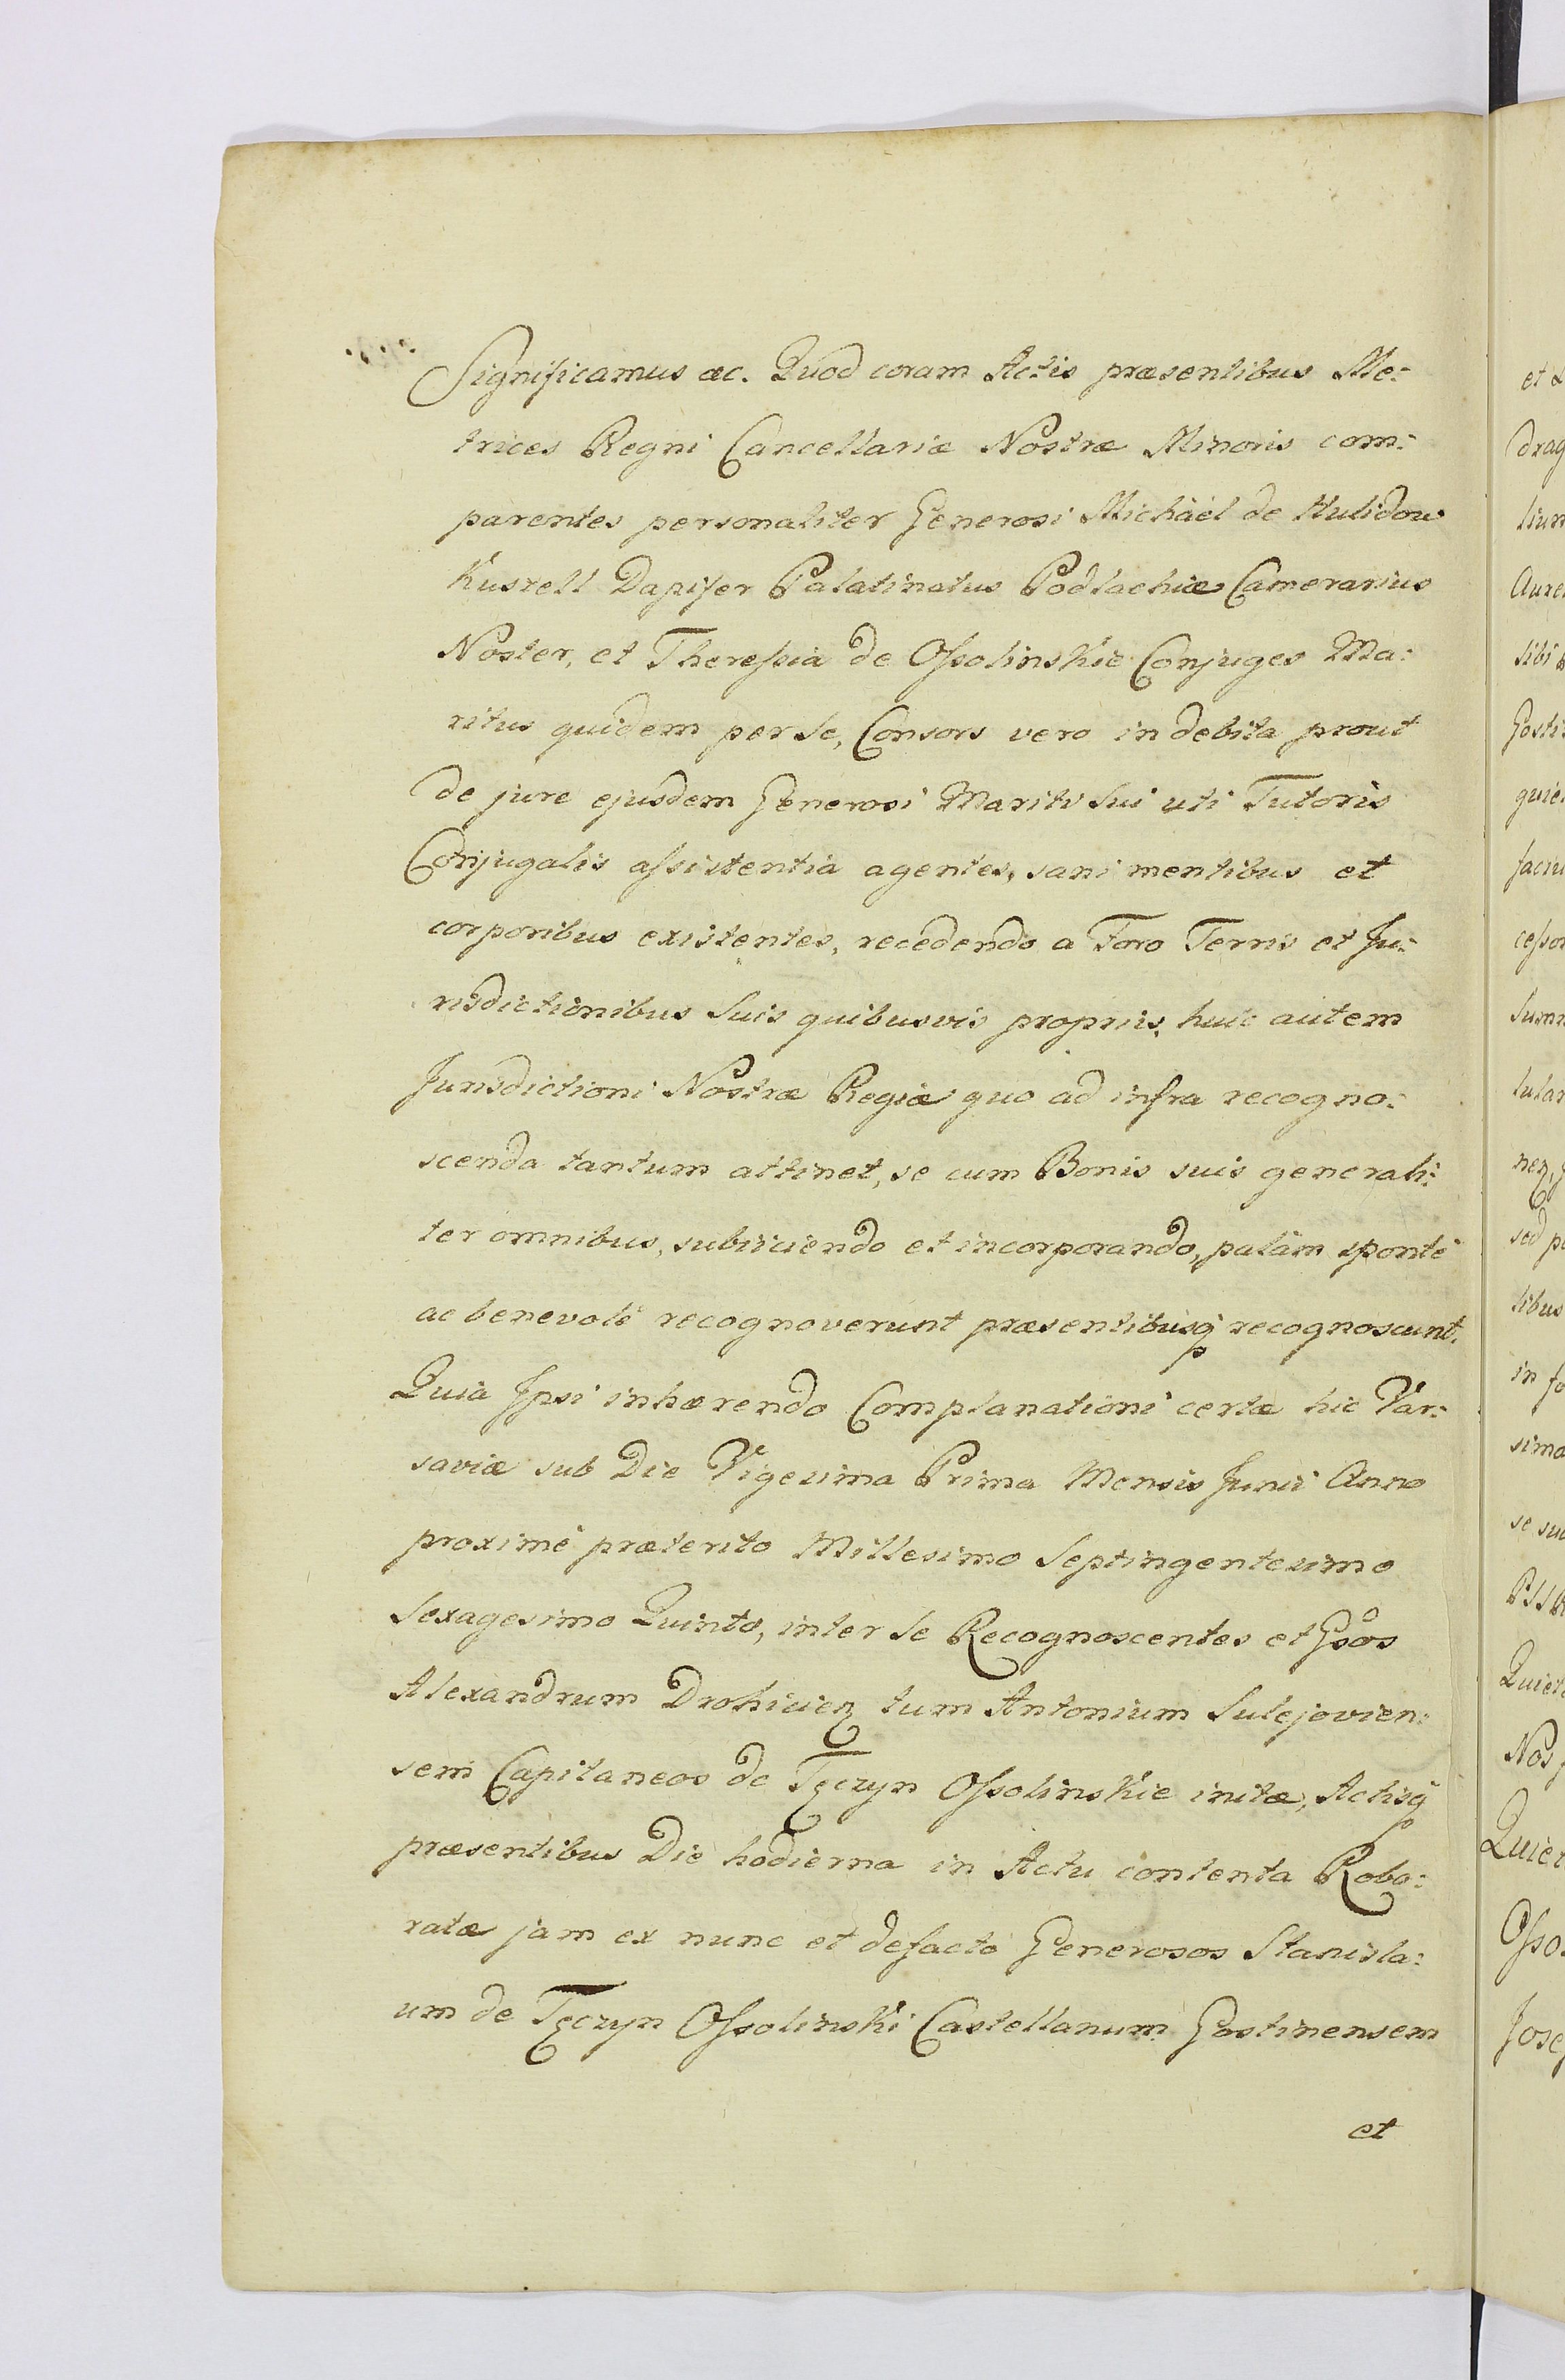 Significamus &c. Quod coram Actis præsentibus Me:
trices Regni Cancellariæ Nostræ Minoris com:
parentes personaliter Generosi Michaël de Hulidow
Kuszell Dapifer Palatinatus Podlachiæ Camerarius
Noster, et Theressia de Ossolinskie Conjuges Ma:
ritus quidem per se, Consors vero in debita prout
de jure ejusdem Generosi Mariti Sui uti Tutoris
Conjugalis assistentia agentes, sani mentibus et
corporibus existentes, recedendo a Foro Terris et Ju:
risdictionibus Suis quibusvis propriis, huic autem
Jurisdictioni Nostræ Regiæ quo ad infra recogno:
scenda tantum attinet, se cum Bonis suis generali:
ter omnibus, subiiciendo et incorporando, palàm spontè
ac benevolè recognoverunt præsentibusq recognoscunt.
Quia Ipsi inhærendo Complanationi certæ hic Var:
saviæ sub Die Vigesima Prima Mensis Junii Anno
proximè præterito Millesimo Septingentesimo
Sexagesimo Quinto, inter se Recognoscentes et Gsos
Alexandrum Drohicien tum Antonium Sulejovien:
sem Capitaneos de Tęczyn Ossolinskie initæ, Actisq
præsentibus Die hodierna in Actu contenta Robo:
ratæ jam ex nunc et defacto Generosos Stanisla:
um de Tęczyn Ossolinski Castellanum Gostinensem
et